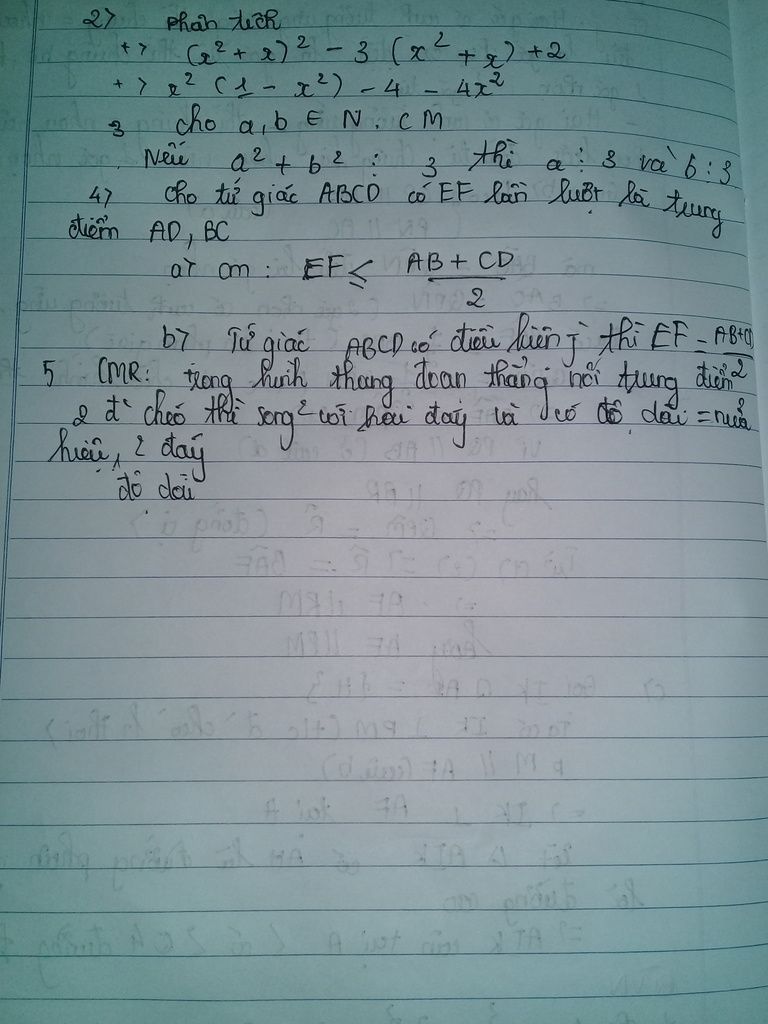 2> phân tích
+> (x² + x)² - 3 (x² + x) + 2
+> x² (1 - x²) - 4 - 4x²
3 cho a, b ∈ N. CM
Nếu a² + b² ⋮ 3 thì a ⋮ 3 và b ⋮ 3
4> cho tứ giác ABCD có EF lần lượt là trung
điểm AD, BC
a> cm: EF ≤ (AB + CD)/2
b> Tứ giác ABCD có điều kiện j thì EF = (AB+CD)/2
5 CMR: trong hình thang đoạn thẳng nối trung điểm
2 đ' chéo thì song² với hai đáy và có độ dài = nửa
hiệu 2 đáy
độ dài